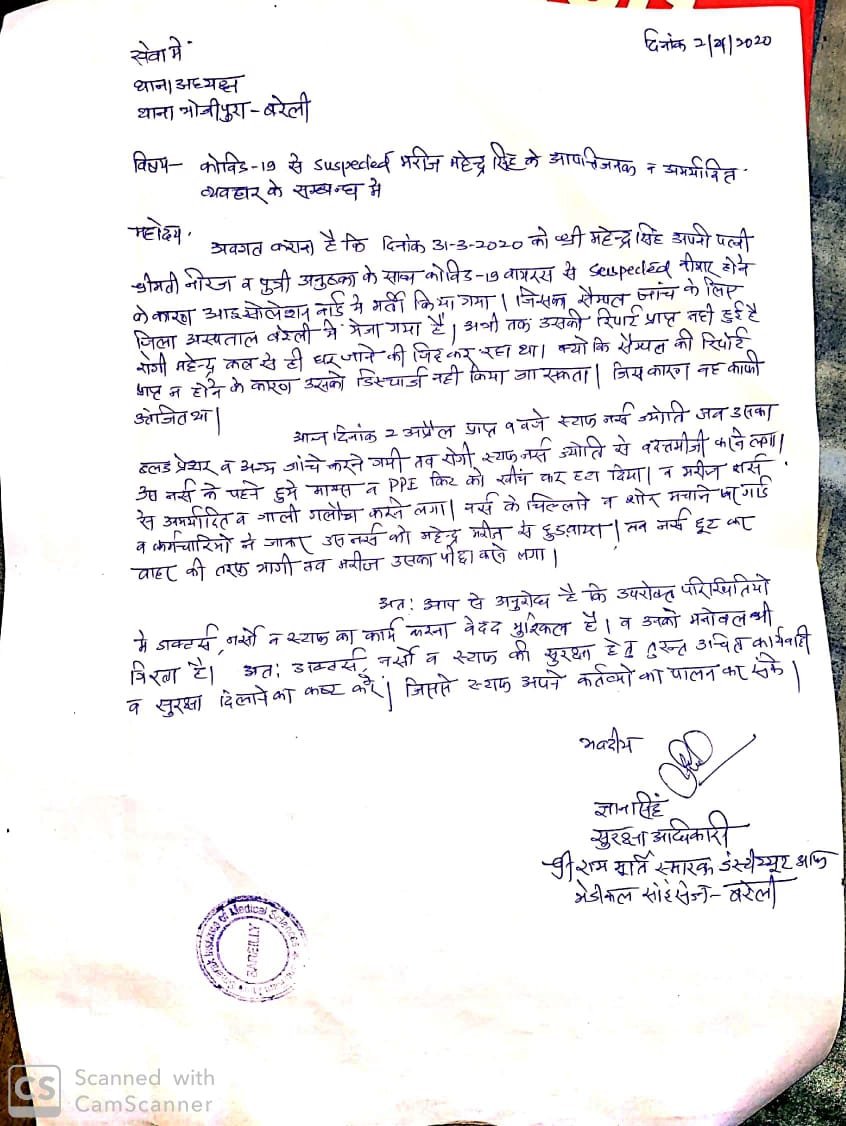 सेवा में
दिनांक 2/4/2020
थाना अध्यक्ष
थाना भोजीपुरा - बरेली
विषय - कोविड-19 से suspected मरीज महेन्द्र सिंह के आपत्तिजनक व अमर्यादित
व्यवहार के सम्बन्ध में
महोदय,
अवगत कराना है कि दिनांक 31-3-2020 को श्री महेन्द्र सिंह अपनी पत्नी
श्रीमती नीरज व पुत्री अनुष्का के साथ कोविड-19 वायरस से suspected बीमार होने
के कारण आइसोलेशन वार्ड में भर्ती किया गया। जिसका सैम्पल जांच के लिए
जिला अस्पताल बरेली में भेजा गया है। अभी तक उसकी रिपोर्ट प्राप्त नही हुई है
रोगी महेन्द्र कल से ही घर जाने की जिद कर रहा था। क्यो कि सैम्पल की रिपोर्ट
प्राप्त न होने के कारण उसको डिस्चार्ज नही किया जा सकता। जिस कारण वह काफी
उत्तेजित था।
आज दिनांक 2 अप्रैल प्रातः 9 बजे स्टाफ नर्स ज्योति जब उसका
ब्लड प्रेशर व अन्य जांचे करने गयी तब रोगी स्टाफ नर्स ज्योति से बदतमीजी करने लगा।
उस नर्स के पहने हुये मास्क व PPE किट को खींच कर हटा दिया। व मरीज नर्स
से अमर्यादित व गाली गलौच करने लगा। नर्स के चिल्लाने व शोर मचाने पर गार्ड
व कर्मचारियो ने जाकर उस नर्स को महेन्द्र मरीज से छुड़वाया। तब नर्स छूट कर
बाहर की तरफ भागी तब मरीज उसका पीछा करने लगा।
अतः आप से अनुरोध है कि उपरोक्त परिस्थितियो
में डाक्टर्स, नर्सो व स्टाफ का कार्य करना बेहद मुश्किल है। व उनका मनोबल भी
गिरता है। अतः डाक्टर्स, नर्सो व स्टाफ की सुरक्षा हेतु तुरन्त उचित कार्यवाही
व सुरक्षा दिलाने का कष्ट करें। जिससे स्टाफ अपने कर्तव्यो का पालन कर सके।
भवदीय
ज्ञान सिंह
सुरक्षा अधिकारी
श्री राम मूर्ति स्मारक इंस्टीट्यूट आफ
मेडीकल सांइसेज - बरेली
Institute of Medical Sciences
BAREILLY
CS Scanned with
CamScanner